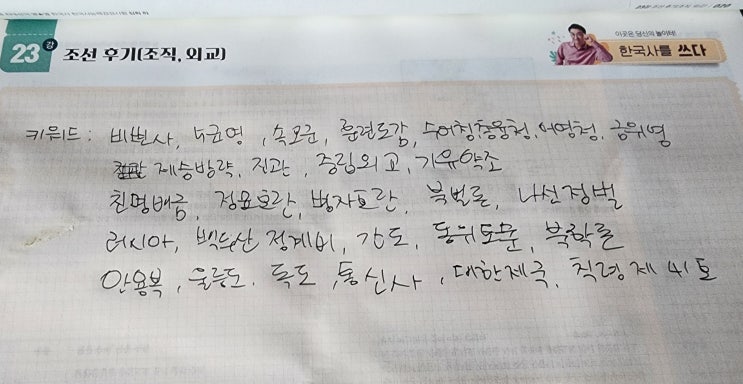 23 강 조선 후기(조직, 외교)
이곳은 당신의 놀이터!
한국사를 쓰다
키워드 : 비변사, 균영, 속오군, 훈련도감, 수어청, 총융청, 어영청, 금위영
제승방략, 진관, 중립외교, 기유약조
친명배금, 정묘호란, 병자호란, 북벌론, 나선정벌
러시아, 백두산 정계비, 간도, 동위토문, 북학론
안용복, 울릉도, 독도, 통신사, 대한제국, 칙령 제 41호